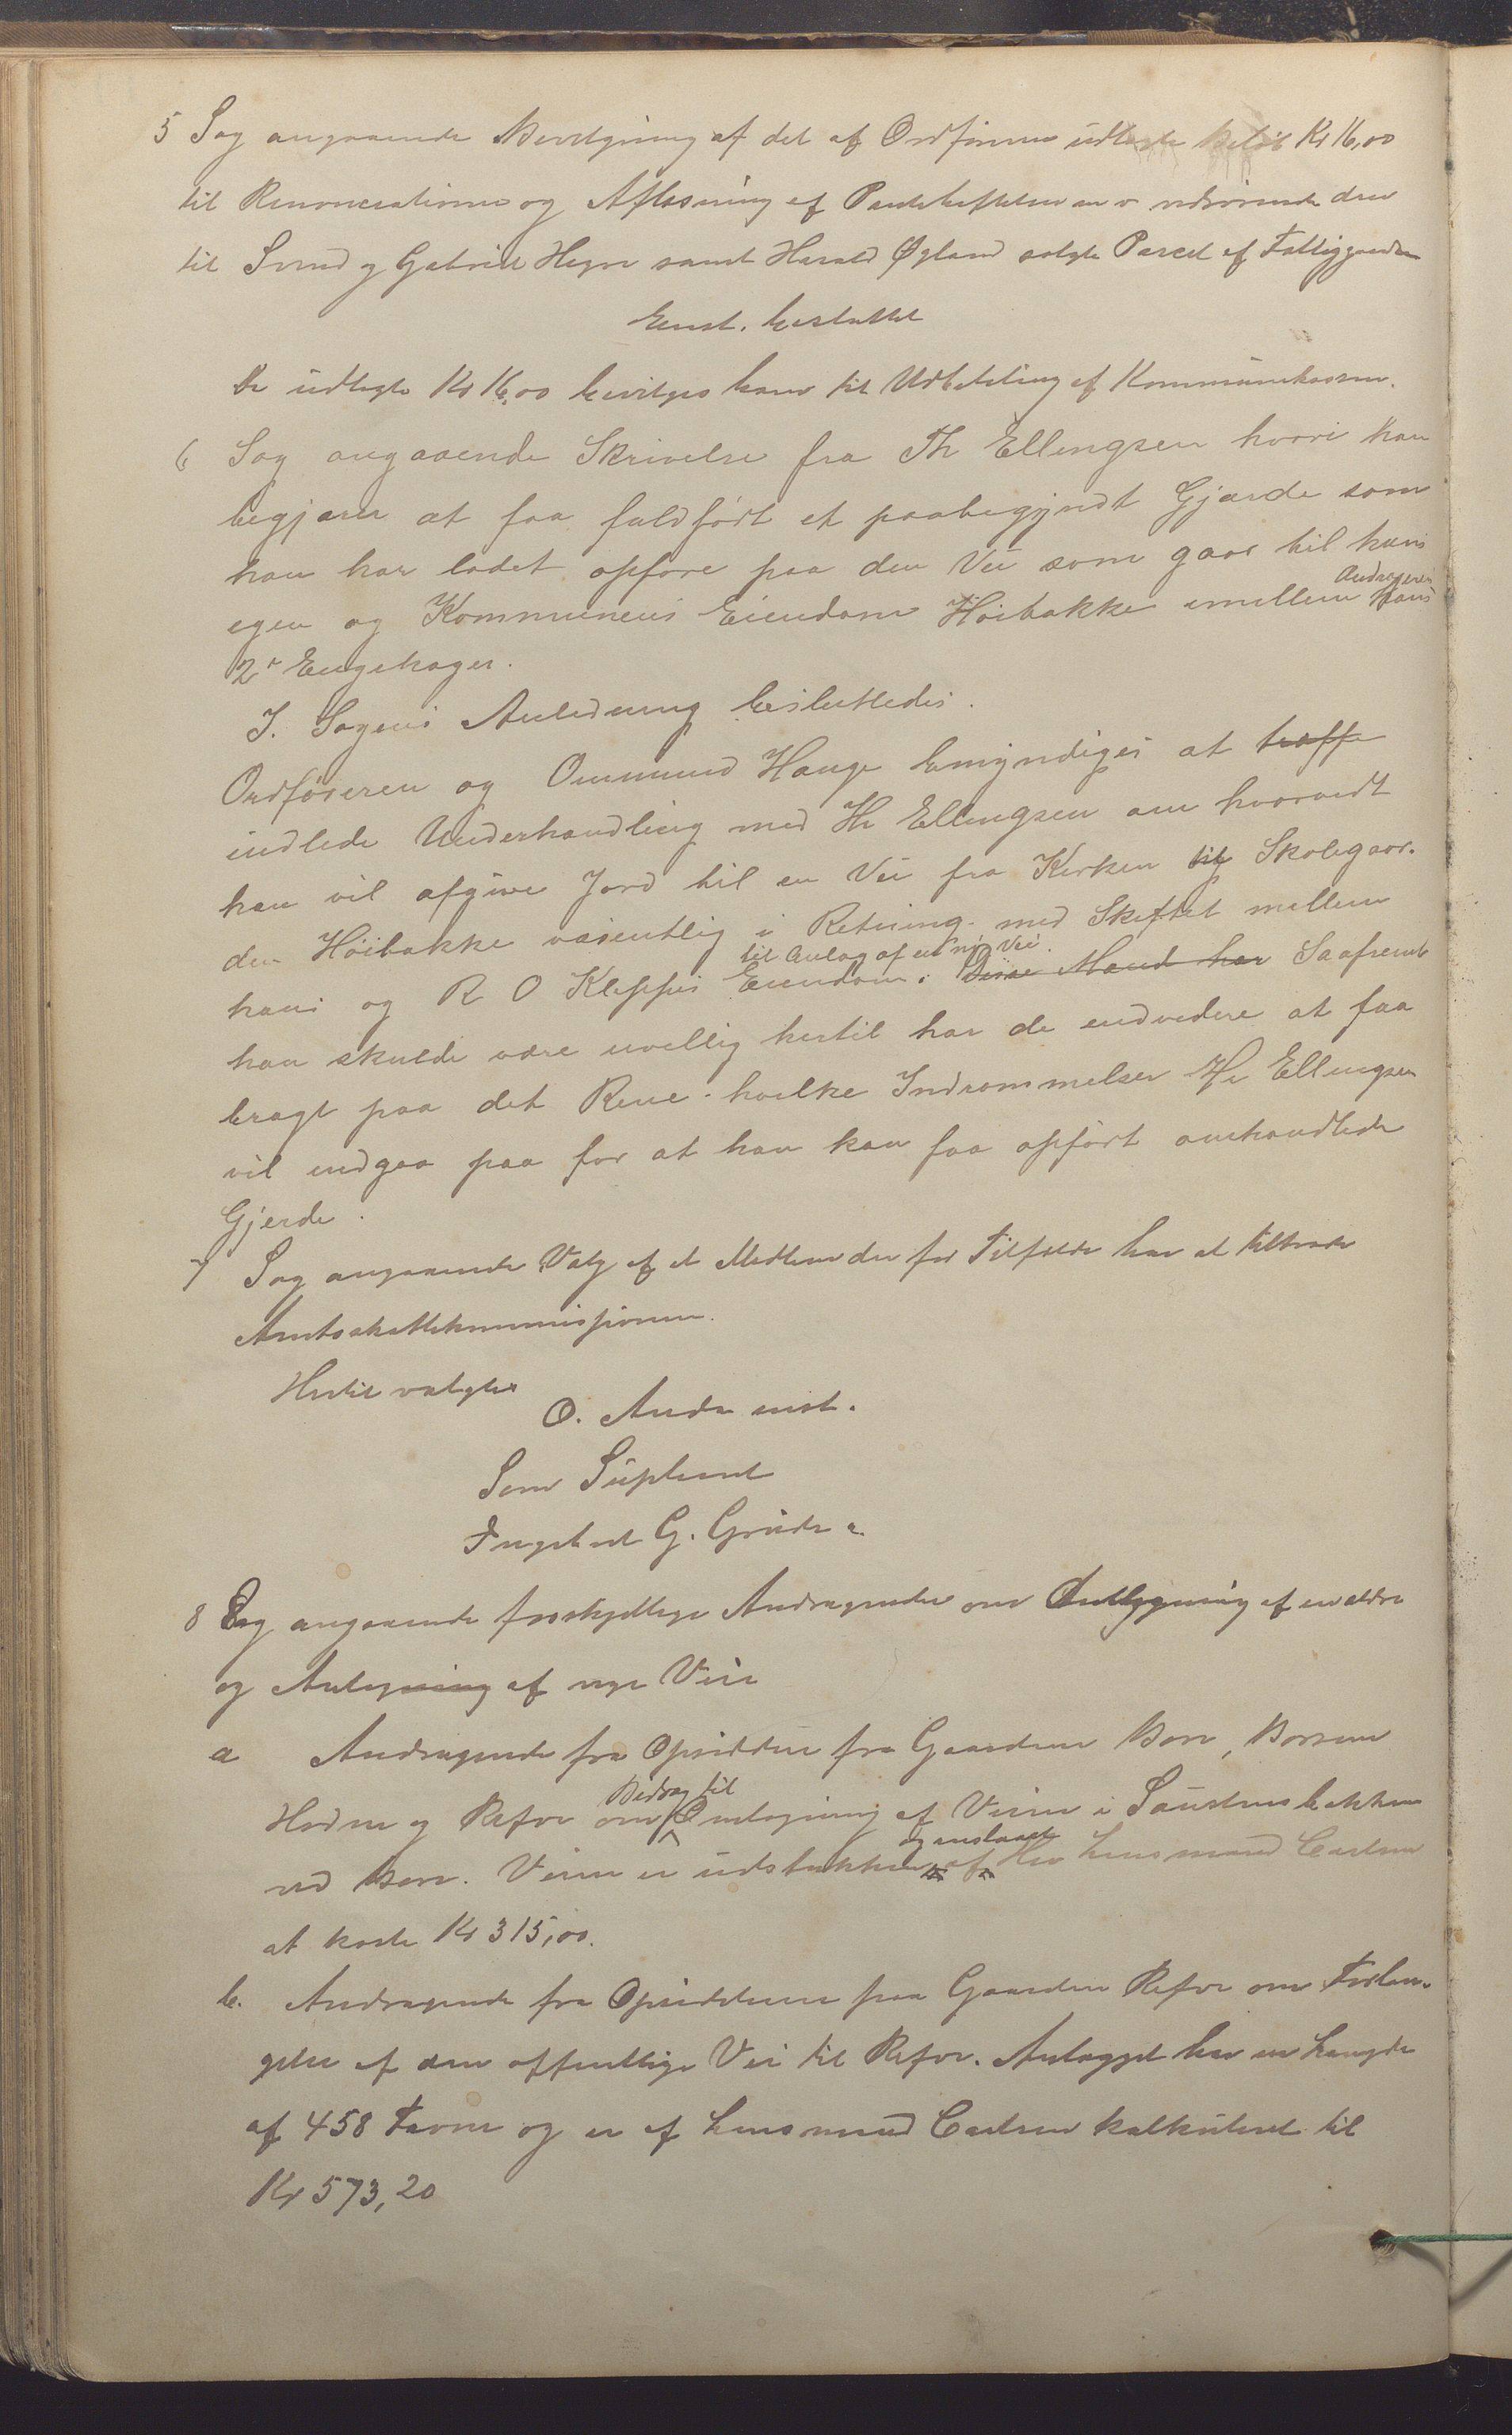 5 Sag angaaende Bevilgning af det af Ordføreren udlagte Beløb Kr 16,00
til Renonciationer og Afløsning af Pantehæftelser m v vedrørende den
til Svend og Gabriel Hegre samt Harald Øgland solgte Parcel af Fattiggaarden
Enst. besluttet
De udlagte Kr 16,00 bevilges ham til Udbetaling af Kommunekassen.
6 Sag angaaende Skrivelse fra Th Ellingsen hvori han
begjærer at faa fuldført et paabegyndt Gjærde som
han har ladet opføre paa den Vei som gaar til hans
egen og Kommunens Eiendom Høibakke imellem hans
Andragerens
2de Engehager.
I Sagens Anledning besluttedes.
Ordføreren og Ommund Hauge bemyndiges at træffe
indlede Underhandling med Hr Ellingsen om hvorvidt
han vil afgive Jord til en Vei fra Kirken til Skolegaar-
den Høibakke væsentlig i Retning med Skiftet mellem
til Anlæg af en ny Vei.
hans og R O Kleppes Eiendom. Disse Mænd har Saafremt
han skulde være uvillig hertil har de endvidere at faa
bragt paa det Rene hvilke Indrømmelser Hr Ellingsen
vil indgaa paa for at han kan faa opført omhandlede
Gjerde.
7 Sag angaaende Valg af et Medlem der for Tilfælde har at tiltræde
Amtsskattekommissionen.
Hertil valgtes
O. Anda enst.
Som Suppleant
Ingebret G. Grude
8 Sag angaaende forskjellige Andragender om Omlægning af en ældre
og Anlægning af nye Veie
a Andragende fra Opsiddere fra Gaardene Bore, Borsem
Bidrag til
Hodne og Refve om Omlægning af Veien i Saustensbakken
og anslaaet
ved Bore. Veien er udstukken af Hr Lensmand Carlsen
at koste Kr 315,00.
b. Andragende fra Opsidderne paa Gaarden Refve om Forlæn-
gelse af den offentlige Vei til Refve. Anlægget har en Længde
af 458 Favne og er af Lensmand Carlsen kalkuleret til
Kr 573,20